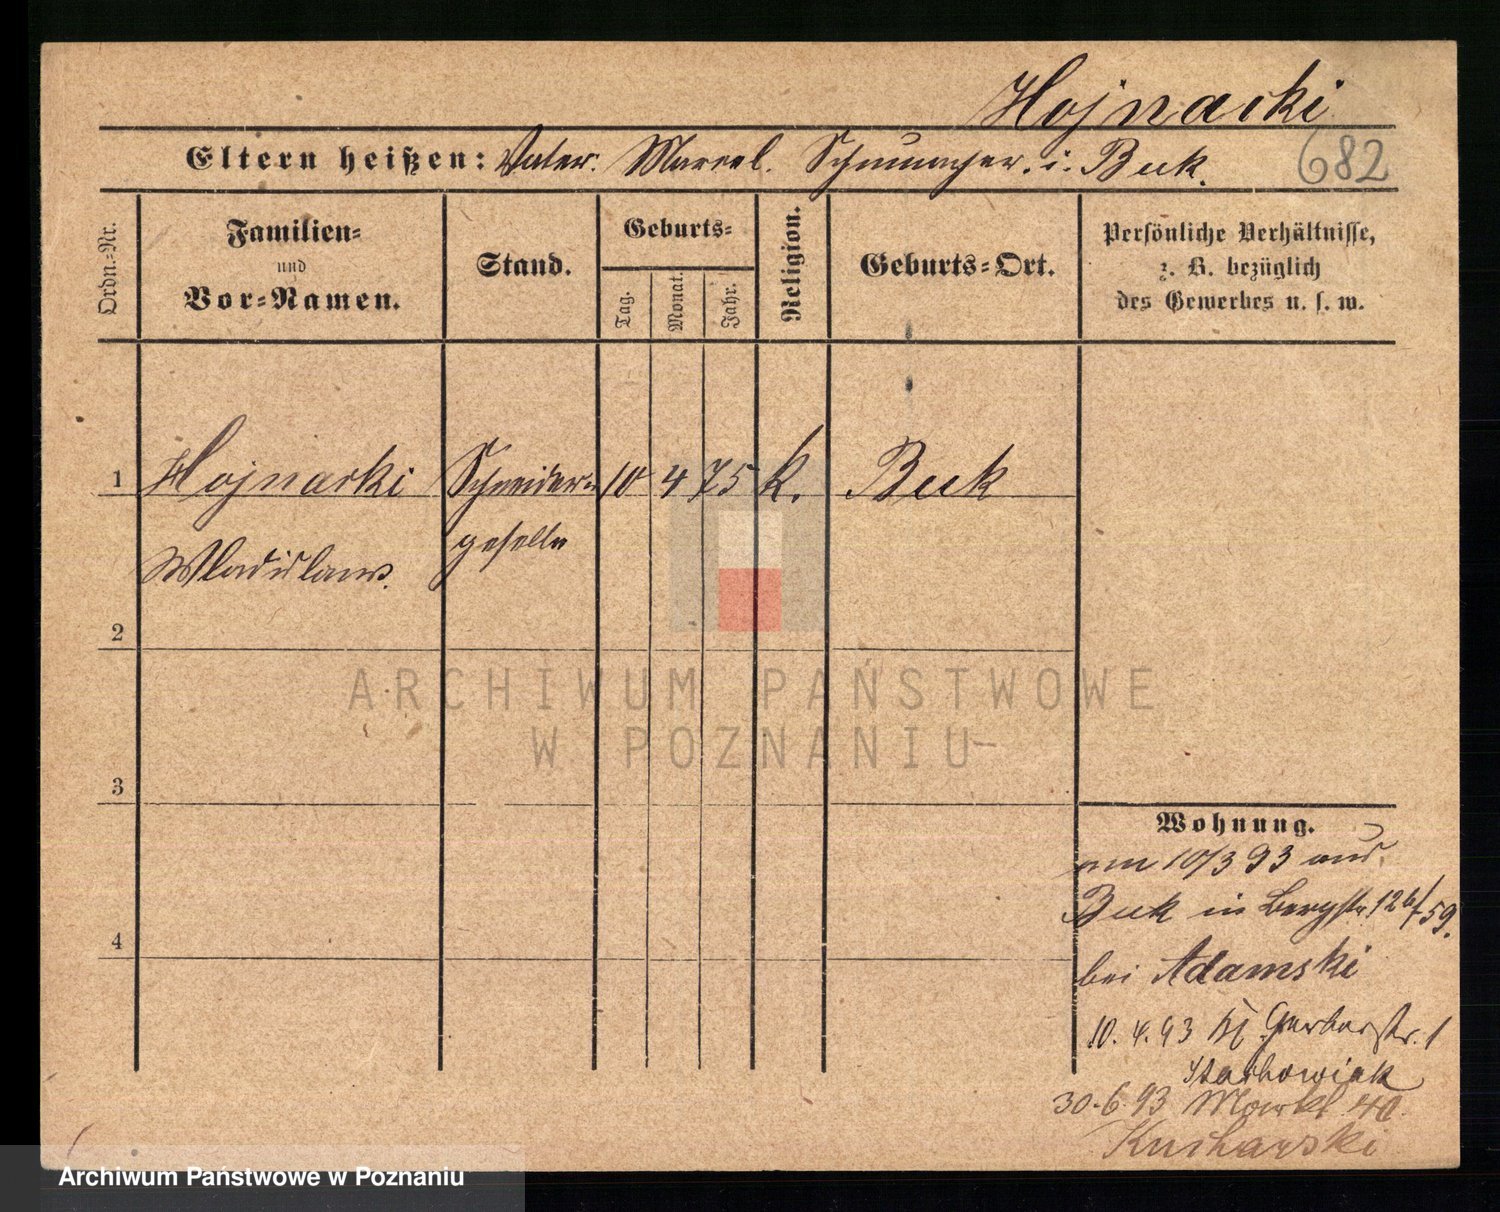 Hojnacki
Eltern heißen: Vater: Marcel. Schumacher. i. Buk.
682
Ordn.-Nr.
Familien-
und
Vor-Namen.
Stand.
Geburts-
Tag.
Monat.
Jahr.
Religion.
Geburts-Ort.
Persönliche Verhältnisse,
z. B. bezüglich
des Gewerbes u. s. w.
1 Hojnacki Schneider- 10 4 75 k. Buk
Wladislaus. geselle
2
ARCHIWUM PAŃSTWOWE
W POZNANIU
3
Wohnung.
am 10/3 93 aus
Buk in Bergstr. 12b/59.
bei Adamski
10. 4. 93 Gerberstr. 1
4
30.6.93 Markt 40.
Kucharski
Archiwum Państwowe w Poznaniu